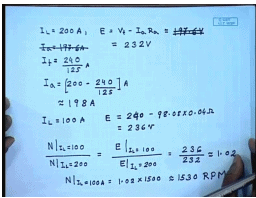 IL = 200A; E = Vt - Ia Ra = 197.6V
Ia = 197.6A = 232V
If = 240/125 A
Ia = [200 - 240/125] A
≈ 198A
IL = 100A E = 240 - 98.08×0.04Ω
= 236V
N|IL=100 / N|IL=200 = E|IL=100 / E|IL=200 = 236/232 ≈ 1.02
N|IL=100A = 1.02 × 1500 ≈ 1530 RPM